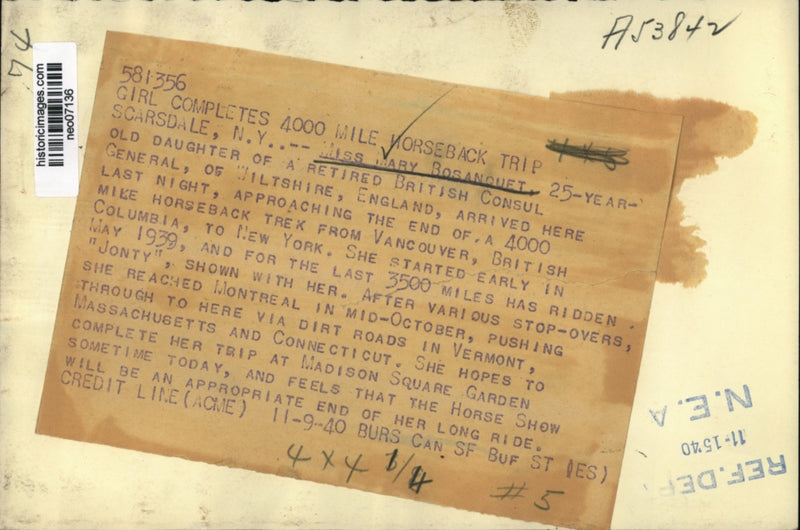 A53842
74
historicimages.com
neo07136
581356
GIRL COMPLETES 4000 MILE HORSEBACK TRIP
SCARSDALE, N.Y..-- MISS MARY BOSANQUET, 25-YEAR-
OLD DAUGHTER OF A RETIRED BRITISH CONSUL
GENERAL, OF WILTSHIRE, ENGLAND, ARRIVED HERE
LAST NIGHT, APPROACHING THE END OF A 4000
MILE HORSEBACK TREK FROM VANCOUVER, BRITISH
COLUMBIA, TO NEW YORK. SHE STARTED EARLY IN
MAY 1939, AND FOR THE LAST 3500 MILES HAS RIDDEN
"JONTY", SHOWN WITH HER. AFTER VARIOUS STOP-OVERS,
SHE REACHED MONTREAL IN MID-OCTOBER, PUSHING
THROUGH TO HERE VIA DIRT ROADS IN VERMONT,
MASSACHUSETTS AND CONNECTICUT. SHE HOPES TO
COMPLETE HER TRIP AT MADISON SQUARE GARDEN
SOMETIME TODAY, AND FEELS THAT THE HORSE SHOW
WILL BE AN APPROPRIATE END OF HER LONG RIDE.
CREDIT LINE (ACME) 11-9-40 BURS CAN SF BUF ST (ES)
4 x 4 1/4
# 5
REF. DEP
11-15'40
N.E.A